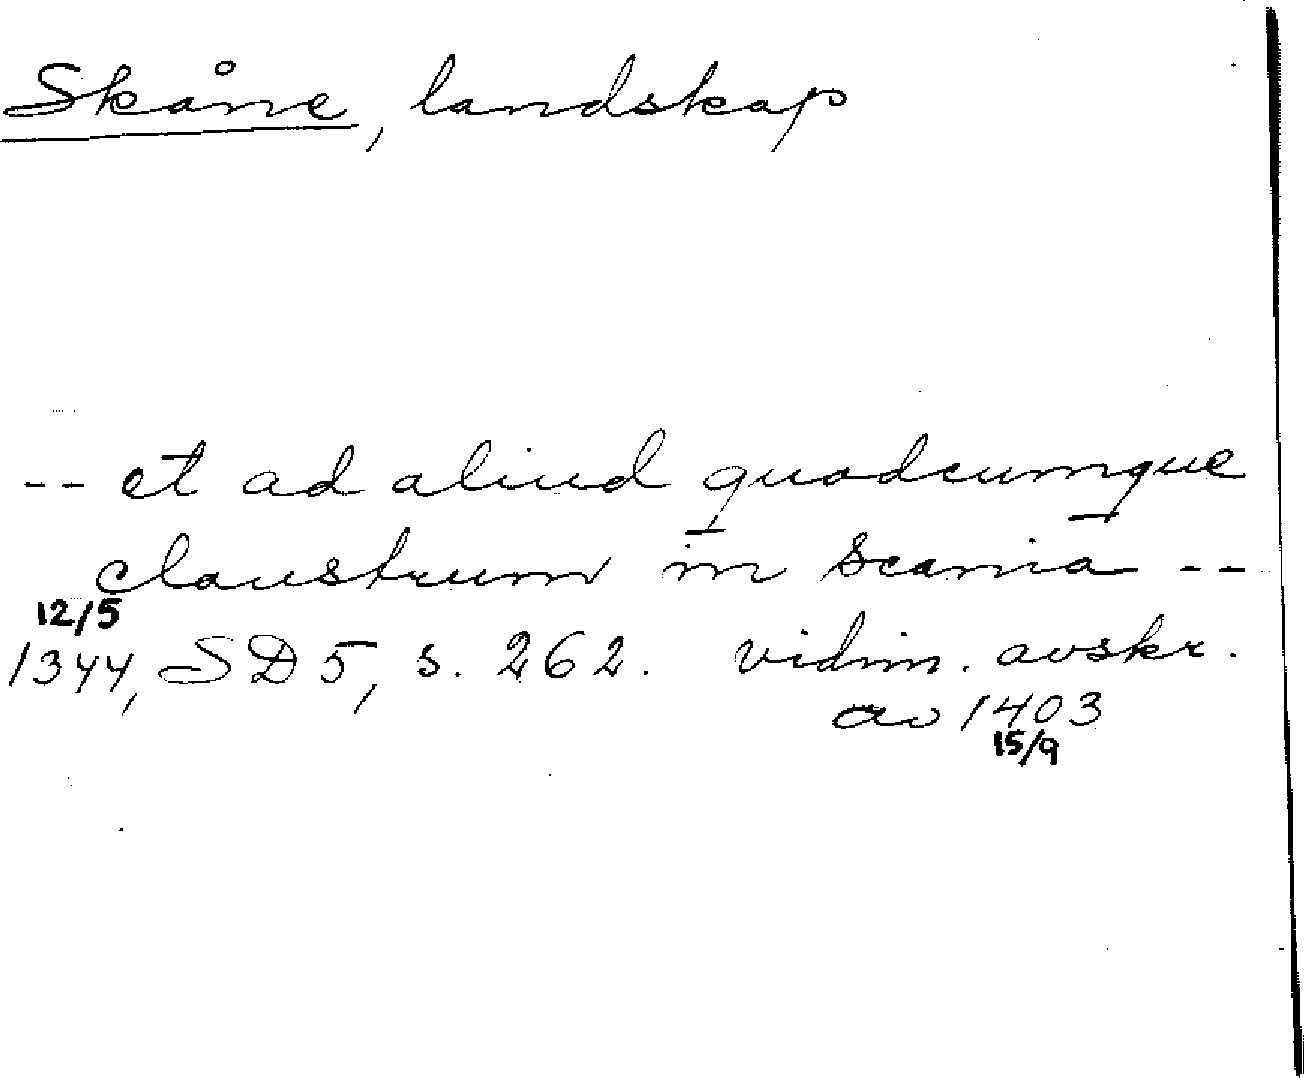 Skåne, landskap
-- et ad aliud quodcumque
claustrum in scania --
12/5
1344, SD 5, s. 262. vidim. avskr.
av 1403
15/9